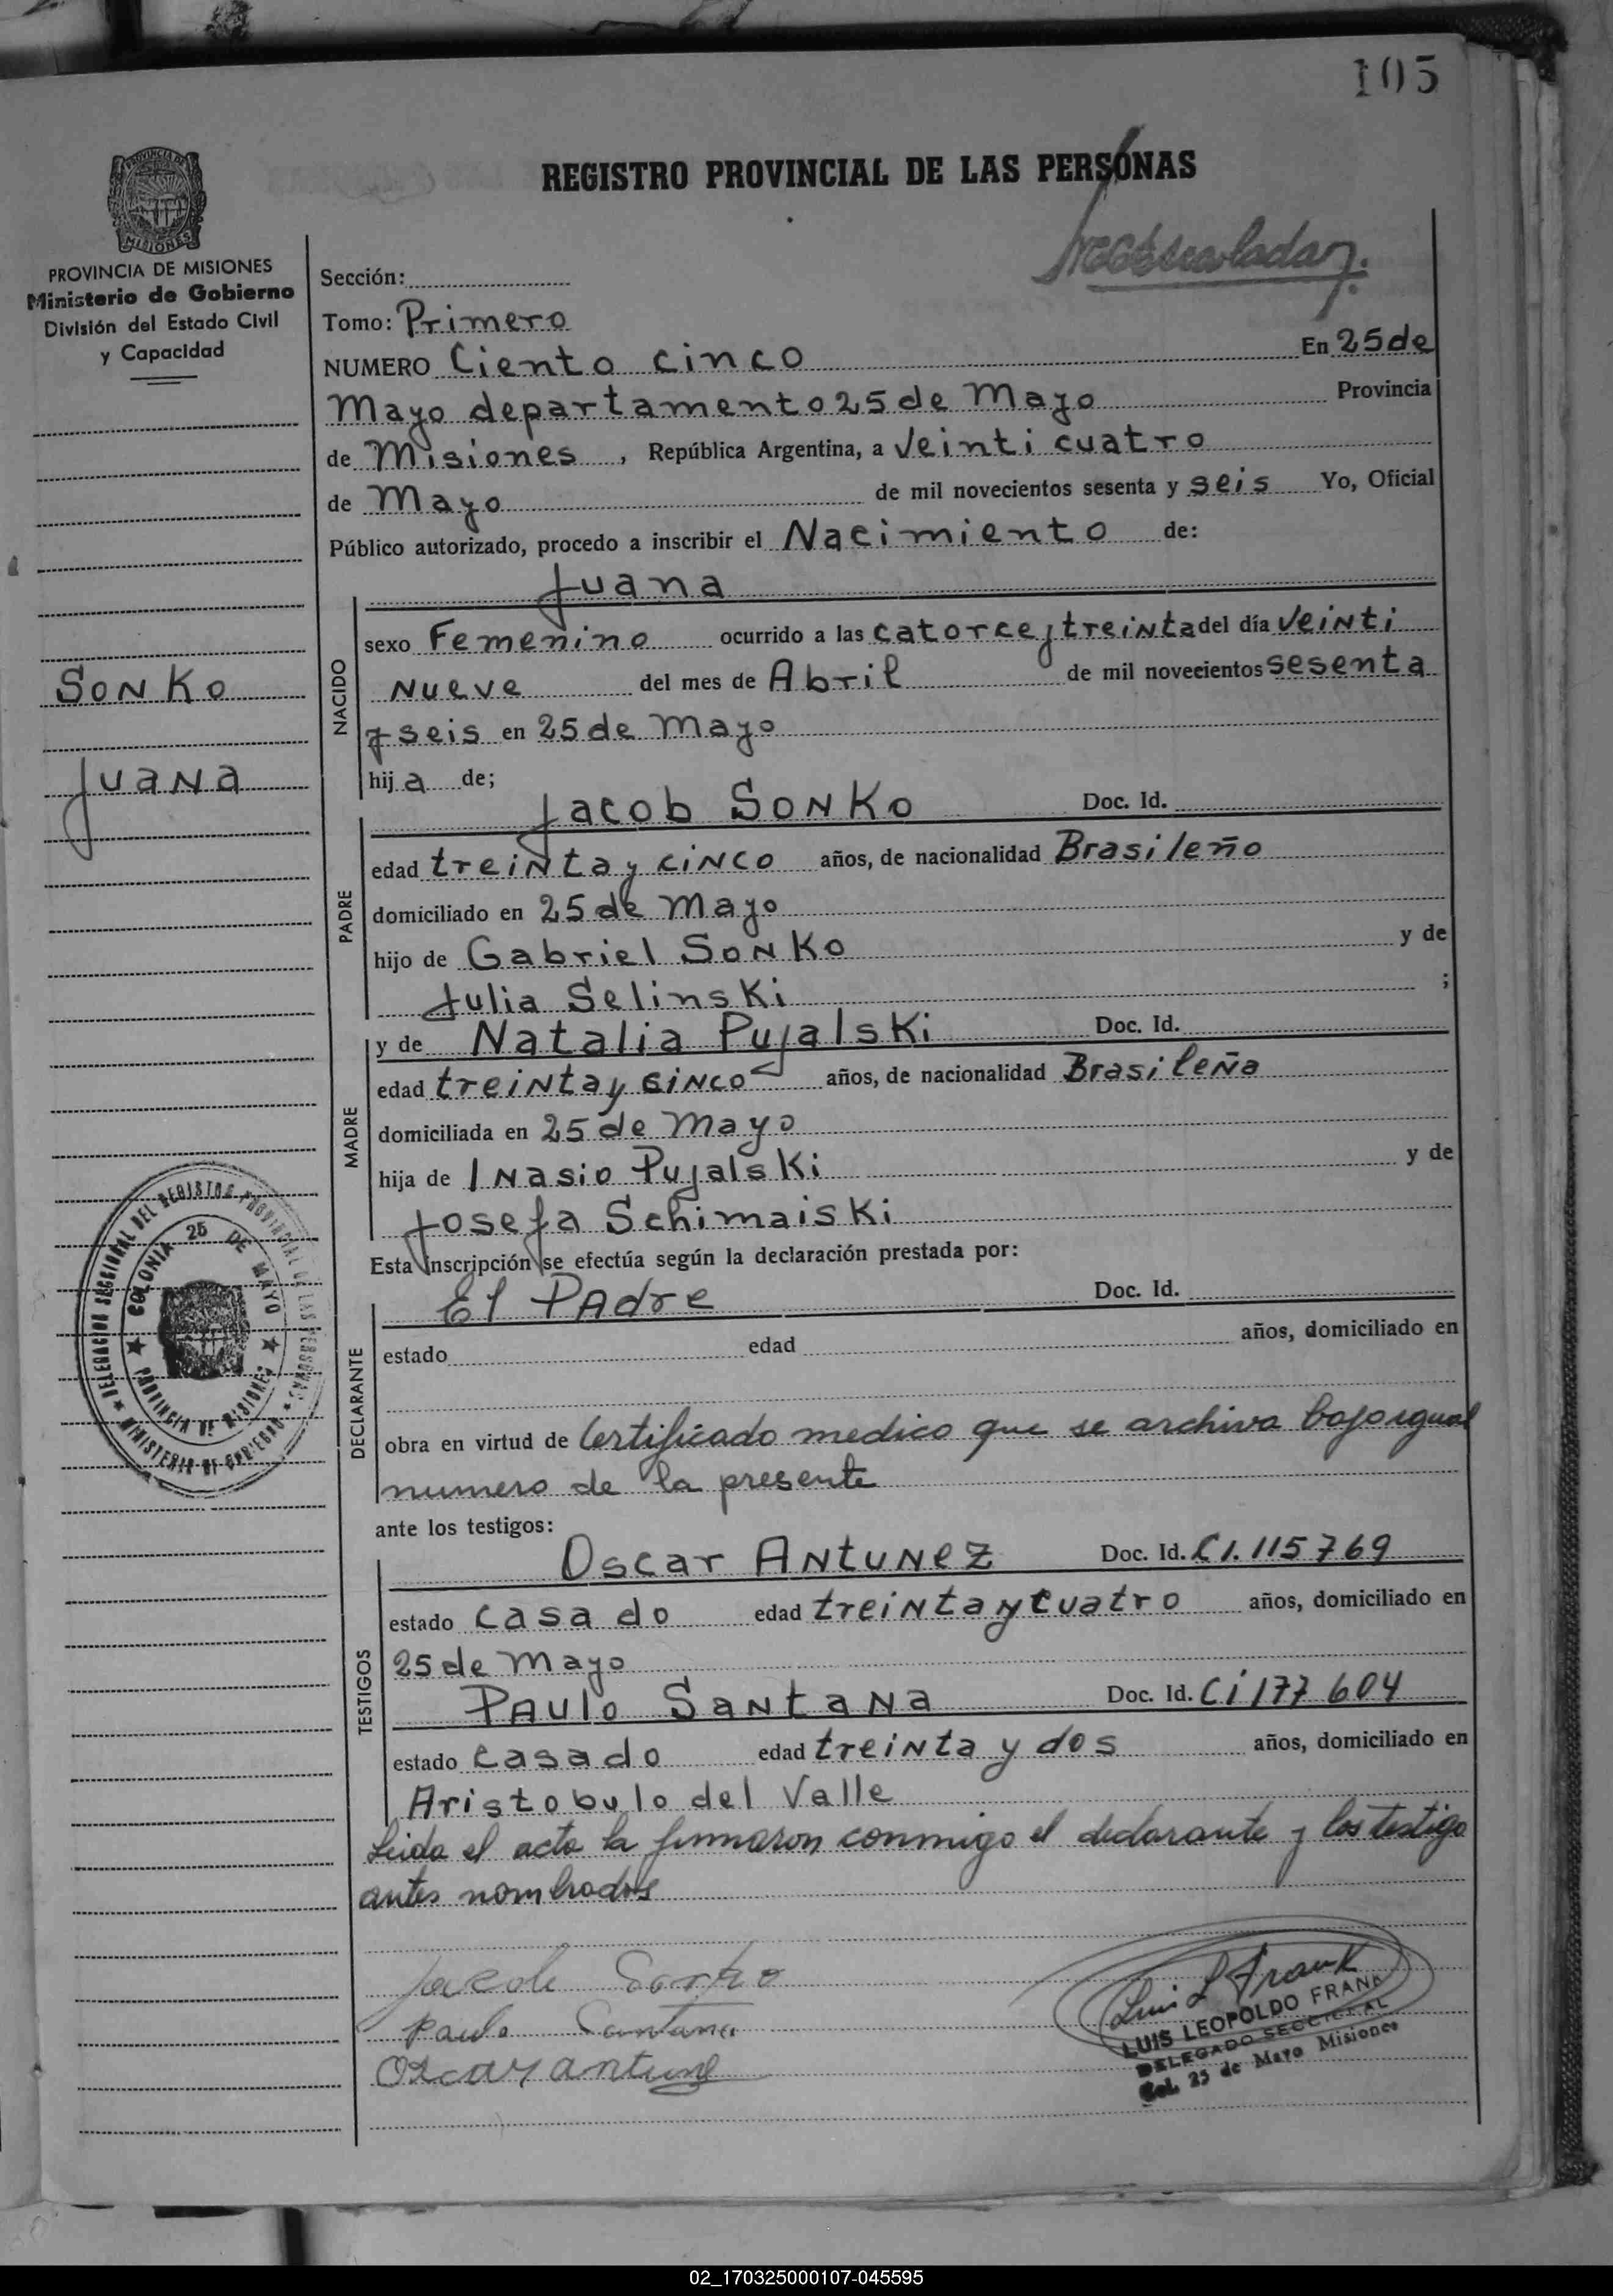 105
REGISTRO PROVINCIAL DE LAS PERSONAS
MISIONES
PROVINCIA DE MISIONES
Ministerio de Gobierno
División del Estado Civil
y Capacidad
SONKO
JUANA
DELEGACION SECCIONAL DEL REGISTRO PROVINCIAL DE LAS PERSONAS
MINISTERIO DE GOBIERNO
COLONIA 25 DE MAYO
PROVINCIA DE MISIONES
Sección:
Tomo: Primero
NUMERO Ciento cinco En 25 de
Mayo departamento 25 de Mayo Provincia
de Misiones, República Argentina, a Veinti cuatro
de Mayo de mil novecientos sesenta y seis Yo, Oficial
Público autorizado, procedo a inscribir el Nacimiento de:
Juana
NACIDO
sexo Femenino ocurrido a las catorce y treinta del día Veinti
Nueve del mes de Abril de mil novecientos sesenta
y seis en 25 de Mayo
hija de;
Jacob SONKO Doc. Id.
PADRE
edad treinta y cinco años, de nacionalidad Brasileño
domiciliado en 25 de Mayo
hijo de Gabriel SONKO y de
Julia Selinski ;
y de Natalia Pujalski Doc. Id.
MADRE
edad treinta y cinco años, de nacionalidad Brasileña
domiciliada en 25 de Mayo
hija de Inasio Pujalski y de
Josefa Schimaiski
Esta inscripción se efectúa según la declaración prestada por:
El Padre Doc. Id.
DECLARANTE
estado edad años, domiciliado en
obra en virtud de Certificado medico que se archiva bajo igual
numero de la presente
ante los testigos:
Oscar ANTUNEZ Doc. Id. C I. 115769
TESTIGOS
estado casado edad treinta y cuatro años, domiciliado en
25 de Mayo
Paulo Santana Doc. Id. Ci 177 604
estado casado edad treinta y dos años, domiciliado en
Aristobulo del Valle
Leida el acta la firmaron conmigo el declarante y los testigo
antes nombrados
Jacob Sonko
Paulo Santana
Oscar Antunez
Luis L Frank
LUIS LEOPOLDO FRANK
DELEGADO SECCIONAL
Col. 25 de Mayo Misiones
02_170325000107-045595